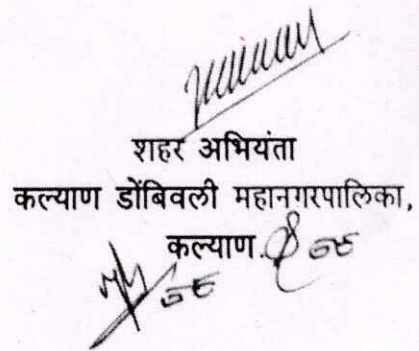 शहर अभियंता
कल्याण डोंबिवली महानगरपालिका,
कल्याण.